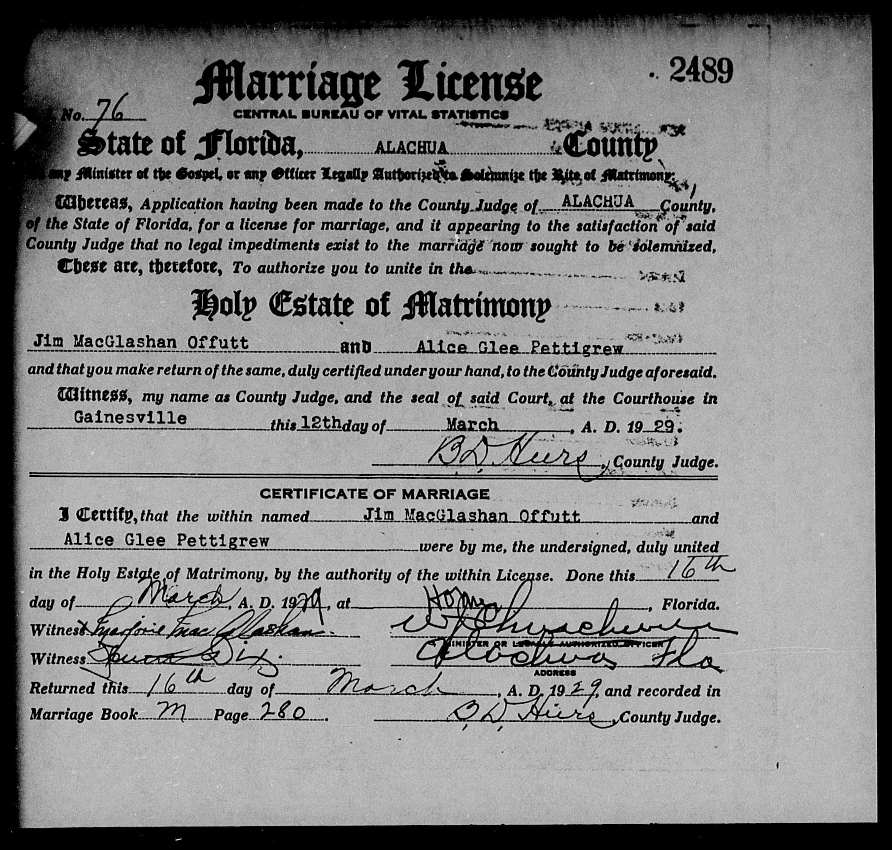 Marriage License
2489
No. 76
CENTRAL BUREAU OF VITAL STATISTICS
State of Florida, ALACHUA County
any Minister of the Gospel, or any Officer Legally Authorized to Solemnize the Rite of Matrimony:
Whereas, Application having been made to the County Judge of ALACHUA County,
of the State of Florida, for a license for marriage, and it appearing to the satisfaction of said
County Judge that no legal impediments exist to the marriage now sought to be solemnized,
These are, therefore, To authorize you to unite in the
Holy Estate of Matrimony
Jim MacGlashan Offutt and Alice Glee Pettigrew
and that you make return of the same, duly certified under your hand, to the County Judge aforesaid.
Witness, my name as County Judge, and the seal of said Court, at the Courthouse in
Gainesville this 12th day of March, A. D. 1929.
B.D. Hiers, County Judge.
CERTIFICATE OF MARRIAGE
I Certify, that the within named Jim MacGlashan Offutt and
Alice Glee Pettigrew were by me, the undersigned, duly united
in the Holy Estate of Matrimony, by the authority of the within License. Done this 16th
day of March, A. D. 1929, at Home, Florida.
Witness Marjorie Mac Glashan.
MINISTER OR LEGALLY AUTHORIZED OFFICER
Witness Dix. Alachua Fla
ADDRESS
Returned this 16th day of March, A. D. 1929, and recorded in
Marriage Book M Page 280. B.D. Hiers, County Judge.